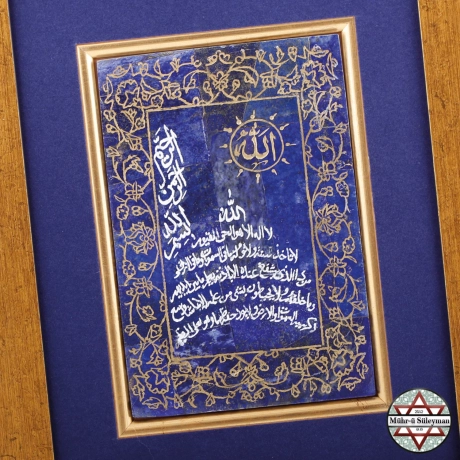 بسم الله الرحمن الرحيم
الله
الله
لا اله الا هو الحي القيوم
لا تاخذه سنة ولا نوم له ما في السموات وما في الارض
من ذا الذي يشفع عنده الا باذنه يعلم ما بين ايديهم
وما خلفهم ولا يحيطون بشيء من علمه الا بما شاء وسع
كرسيه السموات والارض ولا يؤده حفظهما وهو العلي العظيم
Mühr-ü Süleyman